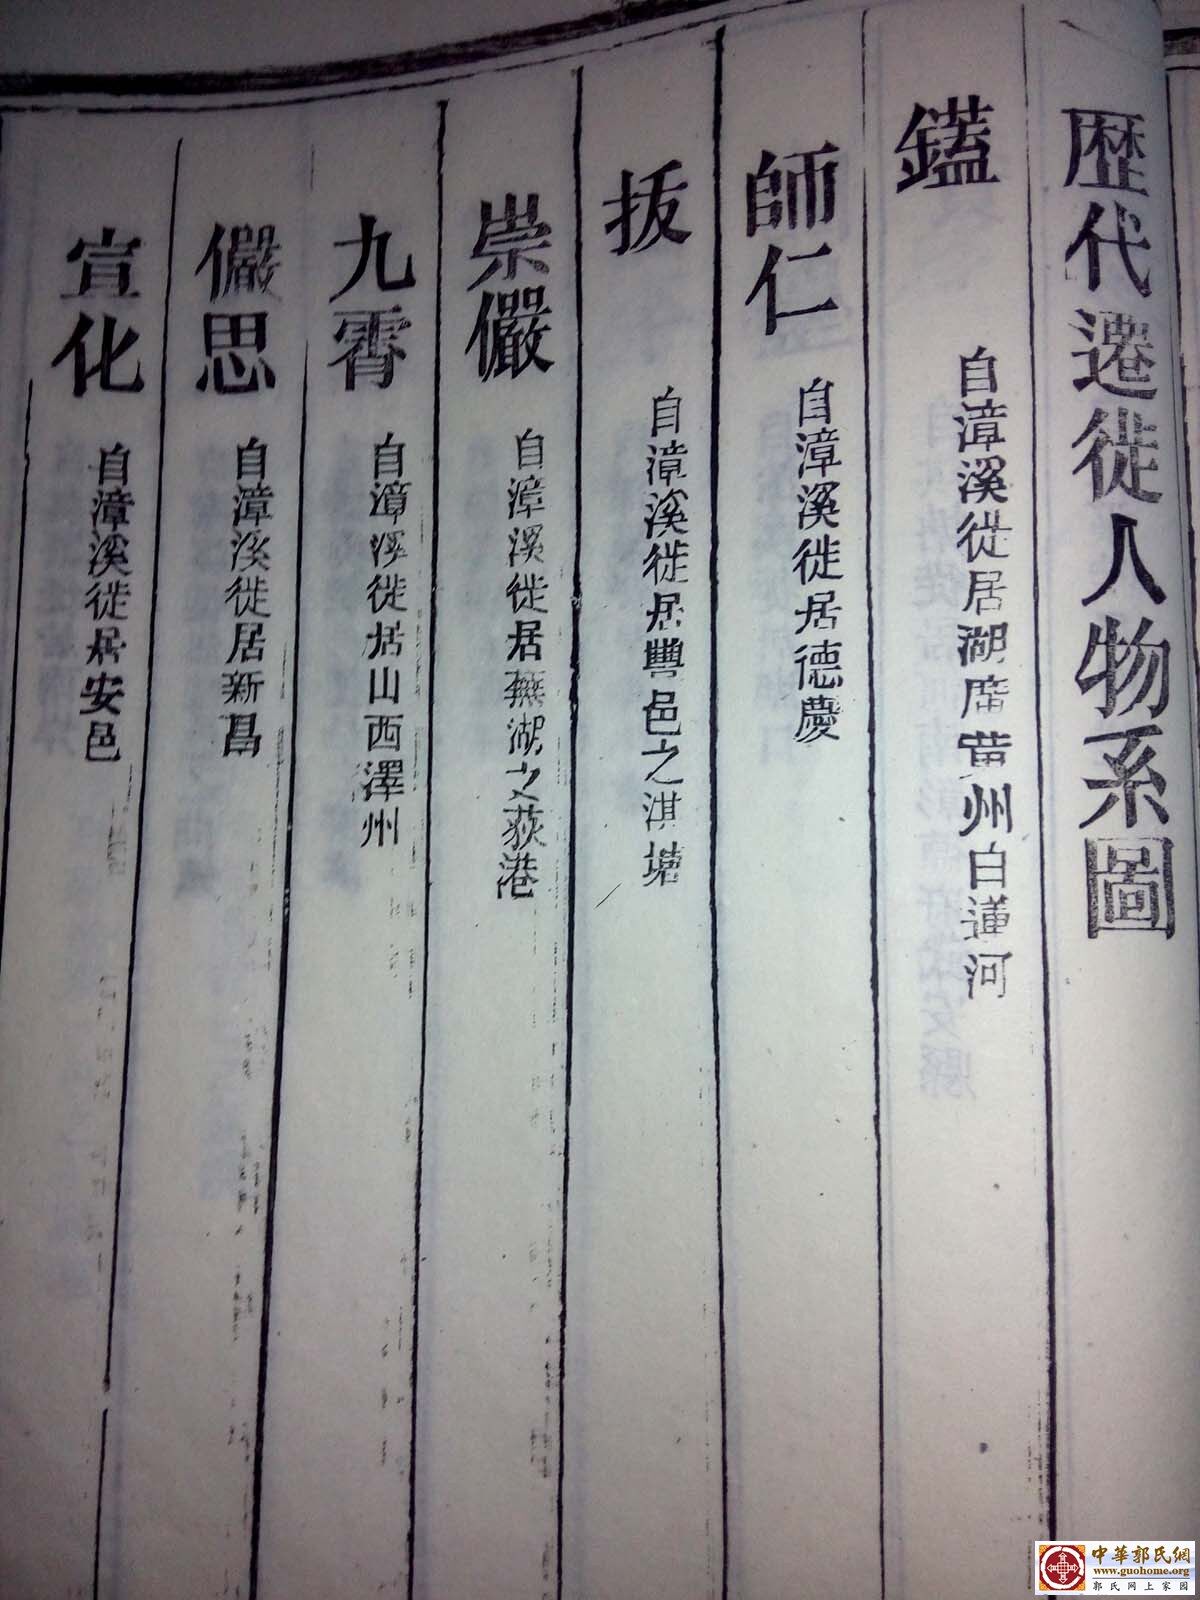 歷代遷徙人物系圖
鎑 自漳溪徙居湖廣黄州白蓮河
師仁 自漳溪徙居德慶
拔 自漳溪徙居豐邑之淇塘
崇儼 自漳溪徙居蕪湖之荻港
九霄 自漳溪徙居山西澤州
儼思 自漳溪徙居新昌
宣化 自漳溪徙居安邑
中華郭氏網
www.guohome.org
郭氏网上家园